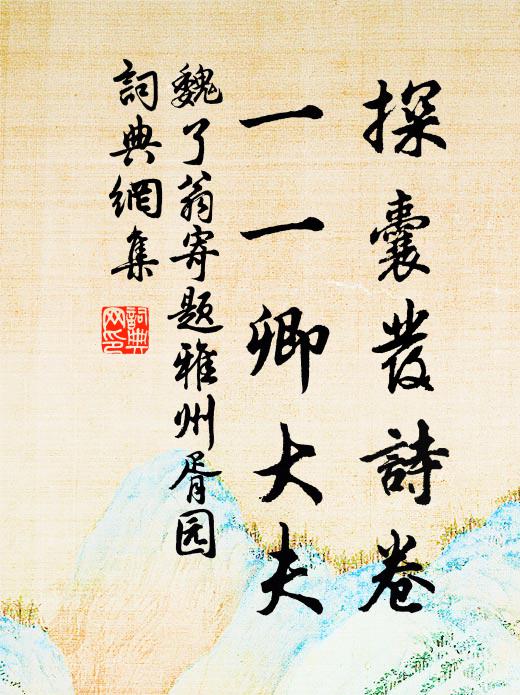 探囊發詩卷
一一卿大夫
魏了翁寄题雅州胥园
詞典網集
詞典
网印